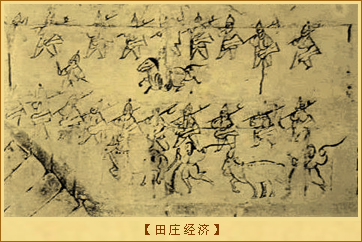 【田庄经济】